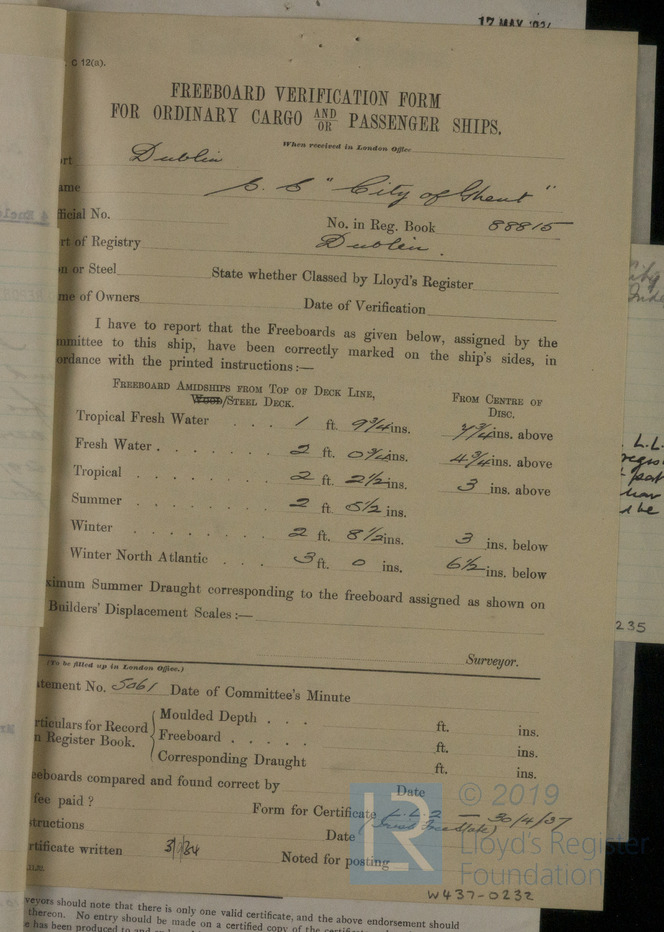 17 MAY
C 12(a).
FREEBOARD VERIFICATION FORM
FOR ORDINARY CARGO AND/OR PASSENGER SHIPS.
When received in London Office
ort Dublin
ame S.S "City of Ghent"
fficial No. No. in Reg. Book 88815
rt of Registry Dublin.
on or Steel State whether Classed by Lloyd's Register
me of Owners Date of Verification
I have to report that the Freeboards as given below, assigned by the
mmittee to this ship, have been correctly marked on the ship's sides, in
ordance with the printed instructions:—
Freeboard Amidships from Top of Deck Line, From Centre of
Wood/Steel Deck. Disc.
Tropical Fresh Water . . . 1 ft. 9¾ ins. 7¾ ins. above
Fresh Water . . . . . . . 2 ft. 0¾ ins. 4¾ ins. above
Tropical . . . . . . . 2 ft. 2½ ins. 3 ins. above
Summer . . . . . . . 2 ft. 5½ ins.
Winter . . . . . . . 2 ft. 8½ ins. 3 ins. below
Winter North Atlantic . . . 3 ft. 0 ins. 6½ ins. below
ximum Summer Draught corresponding to the freeboard assigned as shown on
Builders' Displacement Scales:—
Surveyor.
(To be filled up in London Office.)
atement No. 5061 Date of Committee's Minute
rticulars for Record
n Register Book.
Moulded Depth . . . ft. ins.
Freeboard . . . . . ft. ins.
Corresponding Draught ft. ins.
eeboards compared and found correct by Date
fee paid ? Form for Certificate L.L.2 — 30/4/37
(Irish Free State)
structions Date
rtificate written Noted for posting
© 2019
Lloyd's Register
Foundation
W437-0232
veyors should note that there is only one valid certificate, and the above endorsement should
thereon. No entry should be made on a certified copy of the certificate
235
L.L.